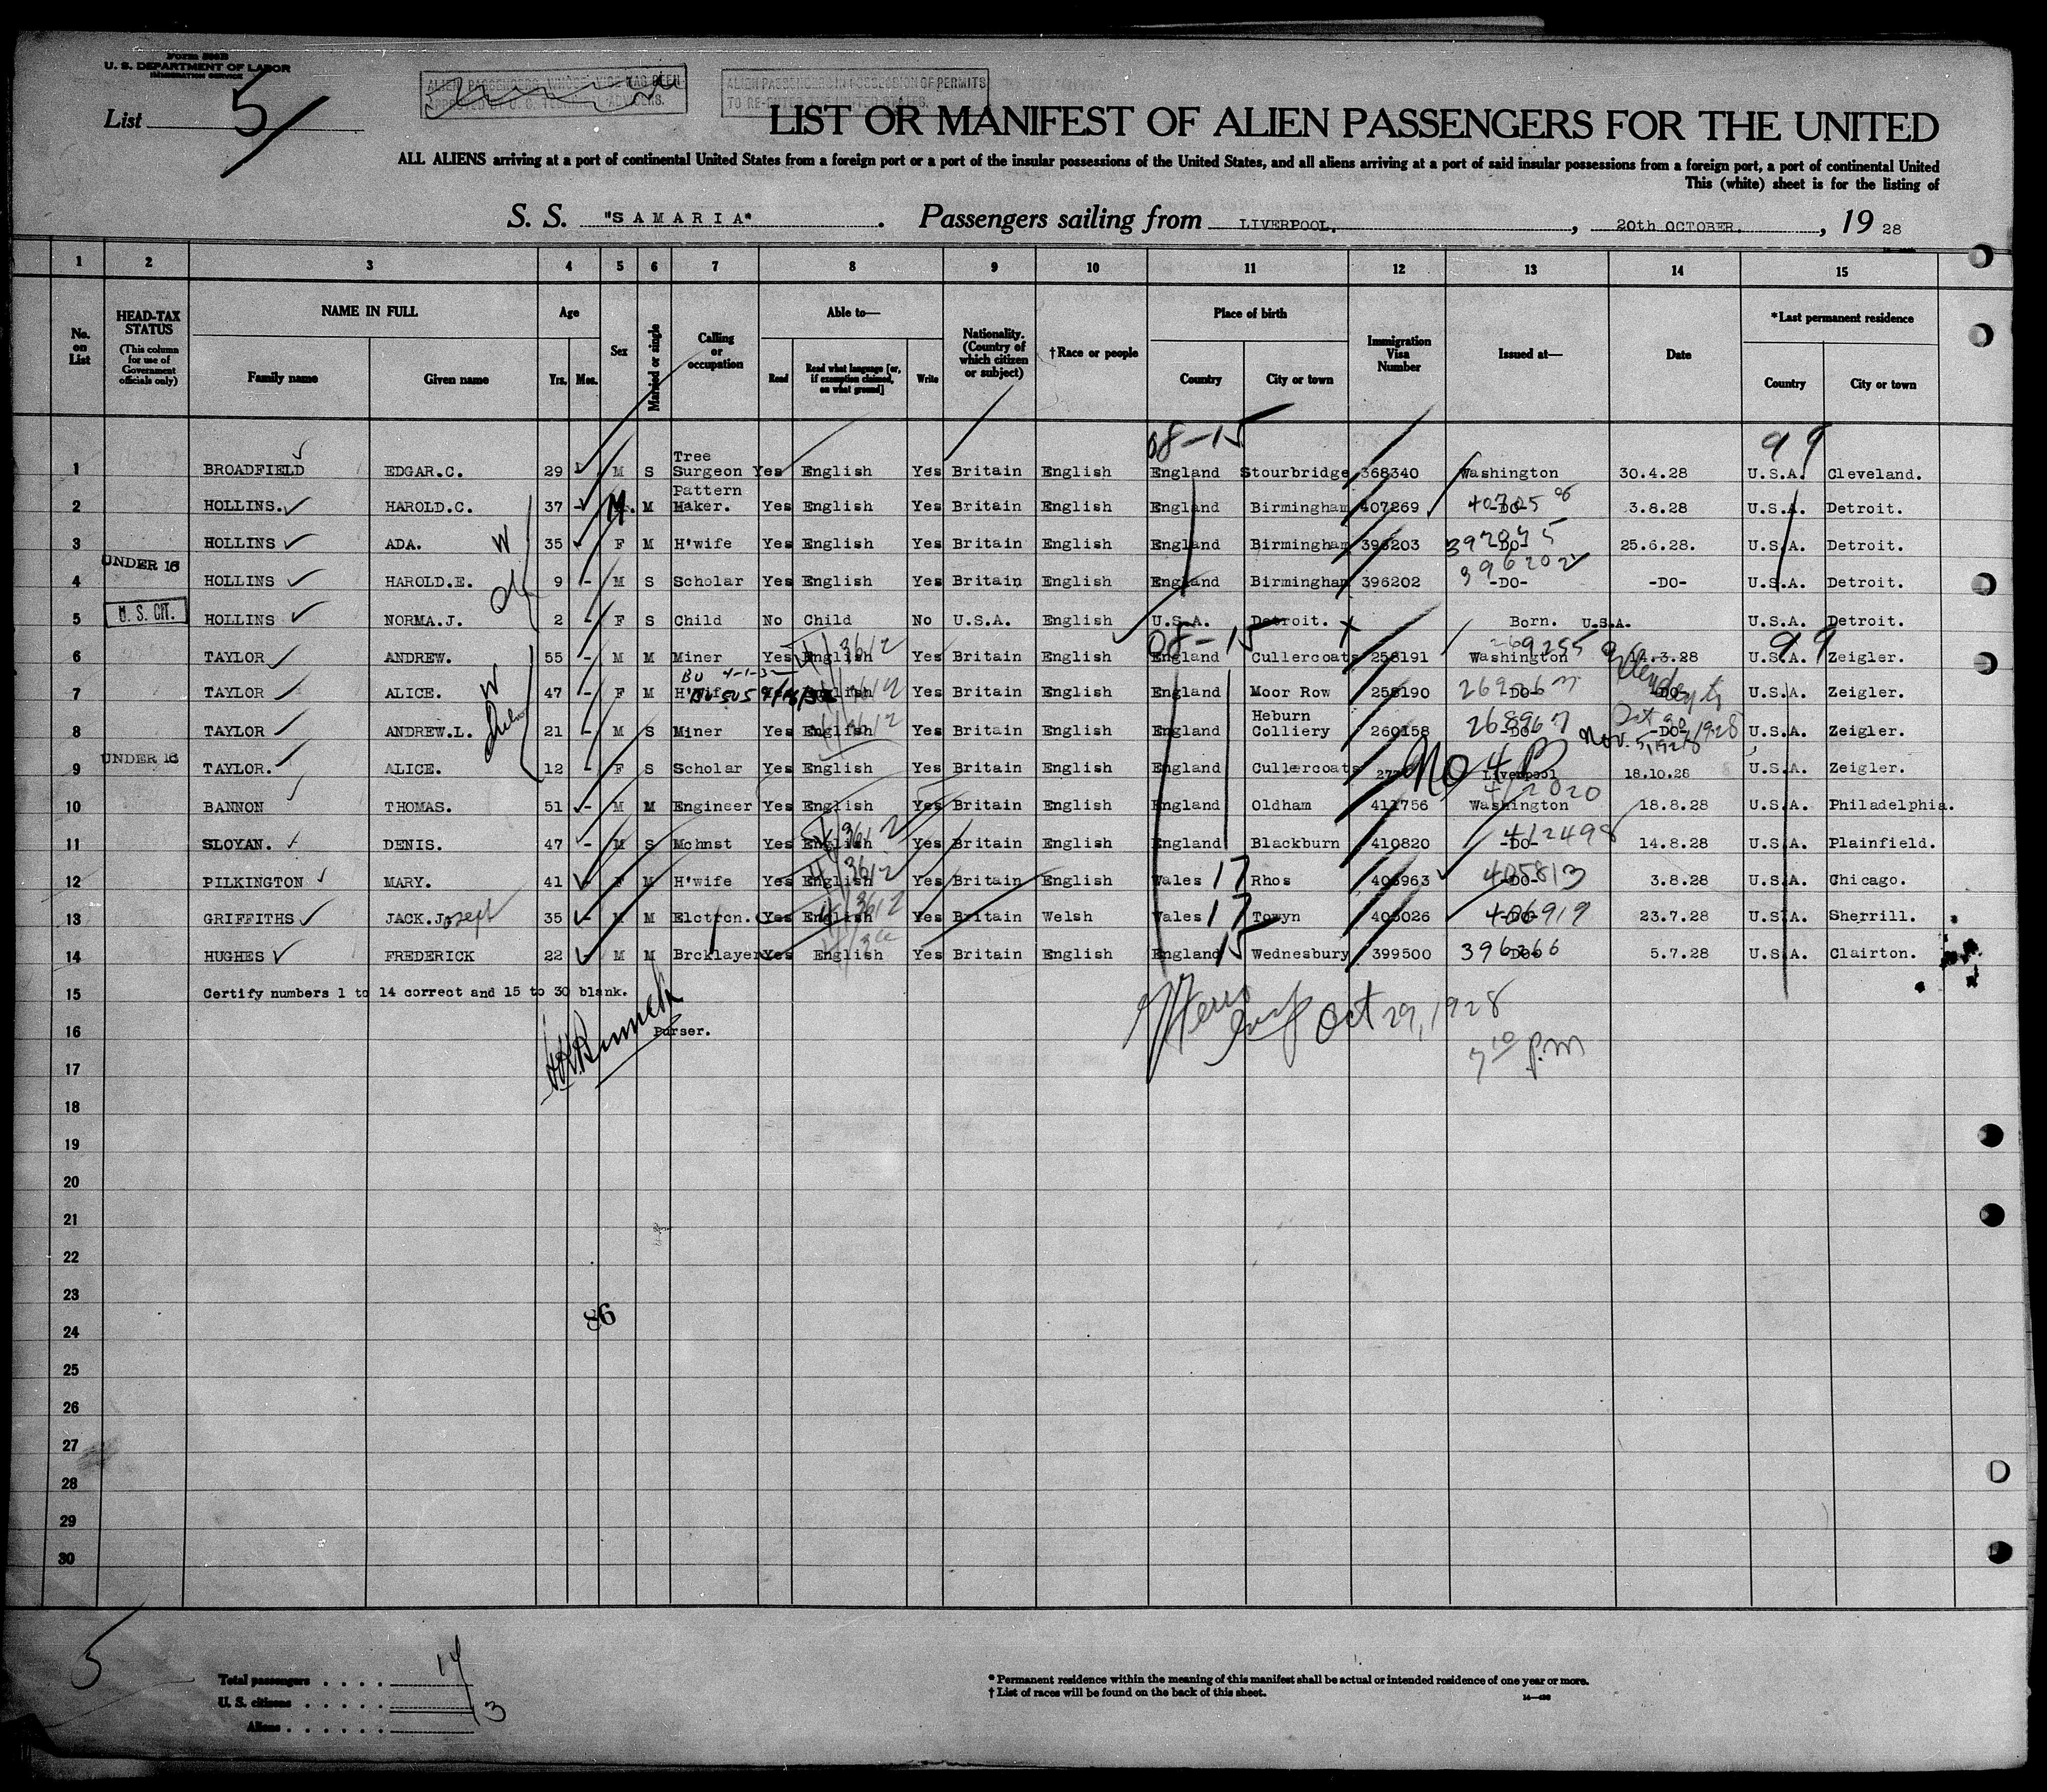 Form 500B
U. S. DEPARTMENT OF LABOR
IMMIGRATION SERVICE
List 5
ALIEN PASSENGERS IN POSSESSION OF PERMITS
TO RE-ENTER UNITED STATES.
LIST OR MANIFEST OF ALIEN PASSENGERS FOR THE UNITED
ALL ALIENS arriving at a port of continental United States from a foreign port or a port of the insular possessions of the United States, and all aliens arriving at a port of said insular possessions from a foreign port, a port of continental United
This (white) sheet is for the listing of
S. S. "SAMARIA" . Passengers sailing from LIVERPOOL. , 20th OCTOBER. , 19 28
1 2 3 4 5 6 7 8 9 10 11 12 13 14 15
No. on List
HEAD-TAX STATUS (This column for use of Government officials only)
NAME IN FULL
Family name Given name
Age
Yrs. Mos.
Sex
Married or single
Calling or occupation
Able to—
Read Read what language [or, if exemption claimed, on what ground] Write
Nationality. (Country of which citizen or subject)
†Race or people
Place of birth
Country City or town
Immigration Visa Number
Issued at—
Date
*Last permanent residence
Country City or town
08-15 99
1 BROADFIELD EDGAR.C. 29 M S Tree Surgeon Yes English Yes Britain English England Stourbridge 368340 Washington 30.4.28 U.S.A. Cleveland.
2 HOLLINS. HAROLD.C. 37 - M. M Pattern Maker. Yes English Yes Britain English England Birmingham 407269 -DO- 3.8.28 U.S.A. Detroit.
3 HOLLINS ADA. 35 F M H'wife Yes English Yes Britain English England Birmingham 396203 -DO- 25.6.28. U.S.A. Detroit.
UNDER 16
4 HOLLINS HAROLD.E. 9 - M S Scholar Yes English Yes Britain English England Birmingham 396202 396202 -DO- -DO- U.S.A. Detroit.
U. S. CIT.
5 HOLLINS NORMA.J. 2 - F S Child No Child No U.S.A. English U.S.A. Detroit. X Born. U.S.A. U.S.A. Detroit.
08-15 99
6 TAYLOR ANDREW. 55 - M M Miner Yes English 3612 Yes Britain English England Cullercoats 258191 269255 Washington 14.3.28 U.S.A. Zeigler.
7 TAYLOR ALICE. 47 - F M H'wife Yes English 3612 Yes Britain English England Moor Row 258190 -DO- -DO- U.S.A. Zeigler.
8 TAYLOR ANDREW.L. 21 - M S Miner Yes English 3612 Yes Britain English England Heburn Colliery 260158 268967 -DO- -DO- U.S.A. Zeigler.
Oct 30 1928
Nov. 5, 1928
UNDER 16
9 TAYLOR. ALICE. 12 - F S Scholar Yes English Yes Britain English England Cullercoats No Liverpool 18.10.28 U.S.A. Zeigler.
10 BANNON THOMAS. 51 - M M Engineer Yes English Yes Britain English England Oldham 411756 Washington 18.8.28 U.S.A. Philadelphia.
11 SLOYAN. DENIS. 47 - M S Mchnst Yes English 3612 Yes Britain English England Blackburn 410820 412498 -DO- 14.8.28 U.S.A. Plainfield.
12 PILKINGTON MARY. 41 - F M H'wife Yes English 3612 Yes Britain English Wales 17 Rhos 406963 405813 -DO- 3.8.28 U.S.A. Chicago.
13 GRIFFITHS JACK.Joseph 35 - M M Elctrcn. Yes English 3612 Yes Britain Welsh Wales 17 Towyn 405026 406919 -DO- 23.7.28 U.S.A. Sherrill.
14 HUGHES FREDERICK 22 - M M Brcklayer Yes English Yes Britain English England 15 Wednesbury 399500 396366 -DO- 5.7.28 U.S.A. Clairton.
15 Certify numbers 1 to 14 correct and 15 to 30 blank.
16 Purser.
Oct 29, 1928
7 10 p.m
17
18
19
20
21
22
23
86
24
25
26
27
28
29
30
5
Total passengers . . . . 14
U. S. citizens . . . . . 1
Aliens . . . . . . 13
* Permanent residence within the meaning of this manifest shall be actual or intended residence of one year or more.
† List of races will be found on the back of this sheet.